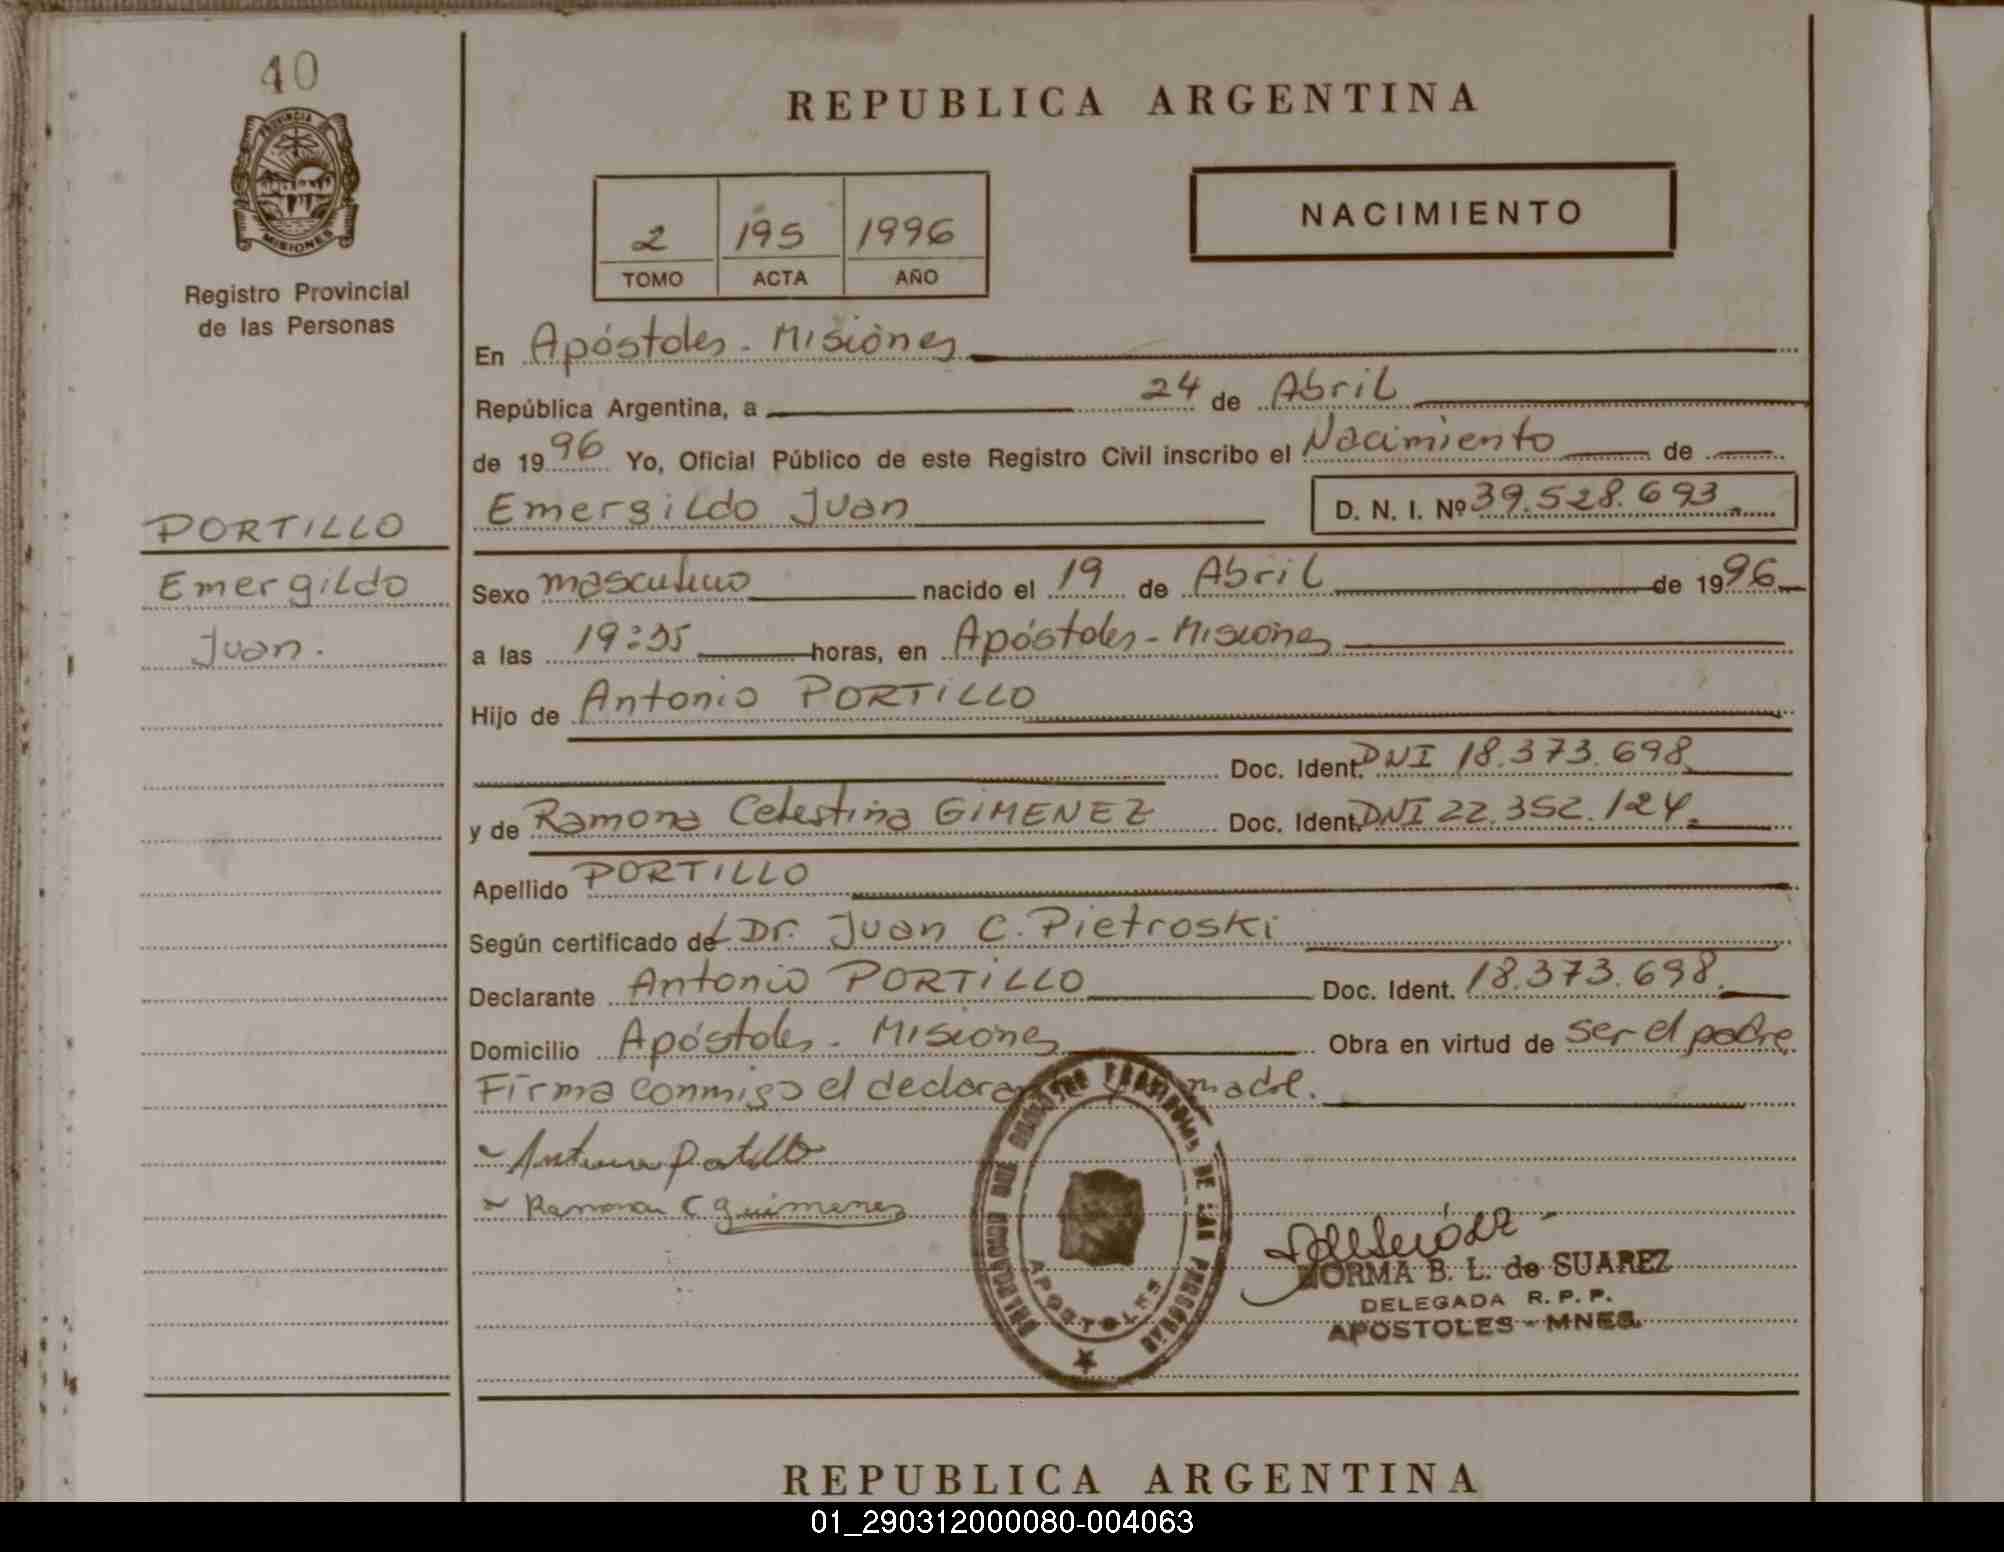 40
PROVINCIA DE
MISIONES
Registro Provincial
de las Personas
PORTILLO
Emergildo
Juan.
REPUBLICA ARGENTINA
2 195 1996
TOMO ACTA AÑO
NACIMIENTO
En Apóstoles - Misiones
República Argentina, a 24 de Abril
de 1996 Yo, Oficial Público de este Registro Civil inscribo el Nacimiento de
Emergildo Juan D. N. I. Nº 39.528.693
Sexo masculino nacido el 19 de Abril de 1996
a las 19:35 horas, en Apóstoles - Misiones
Hijo de Antonio PORTILLO
Doc. Ident. DNI 18.373.698
y de Ramona Celestina GIMENEZ Doc. Ident. DNI 22.352.124.
Apellido PORTILLO
Según certificado del Dr. Juan C. Pietroski
Declarante Antonio PORTILLO Doc. Ident. 18.373.698.
Domicilio Apóstoles - Misiones Obra en virtud de ser el padre
Firma conmigo el declara madre.
Antonio Portillo
Ramona C guimenes
PROVINCIAL DE LAS PERSONAS
APOSTOLES
NORMA B. L. de SUAREZ
DELEGADA R. P. P.
APOSTOLES - MNES.
REPUBLICA ARGENTINA
01_290312000080-004063